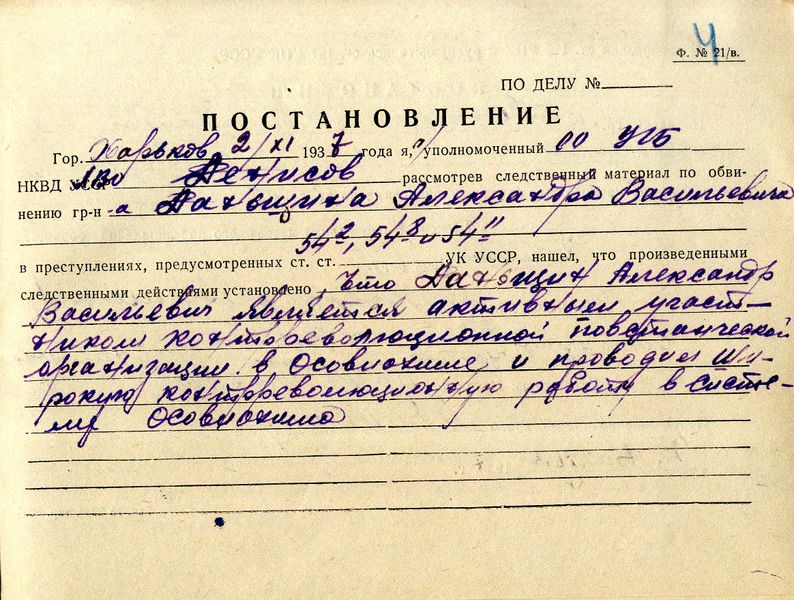 4
Ф. № 21/в.
ПО ДЕЛУ №
ПОСТАНОВЛЕНИЕ
Гор. Харьков, 2/XI 1937 года я, уполномоченный 00 УГБ
НКВД УССР Денисов рассмотрев следственный материал по обви-
нению гр-н-а Даньщина Александра Васильевича
54-2, 54-8 и 54-11
в преступлениях, предусмотренных ст. ст. УК УССР, нашел, что произведенными
следственными действиями установлено, Что Даньщин Александр
Васильевич является активным участ-
ником контрреволюционной повстанческой
организации в Осовиахиме и проводил ши-
рокую контрреволюционную работу в систе-
ме Осовиахима